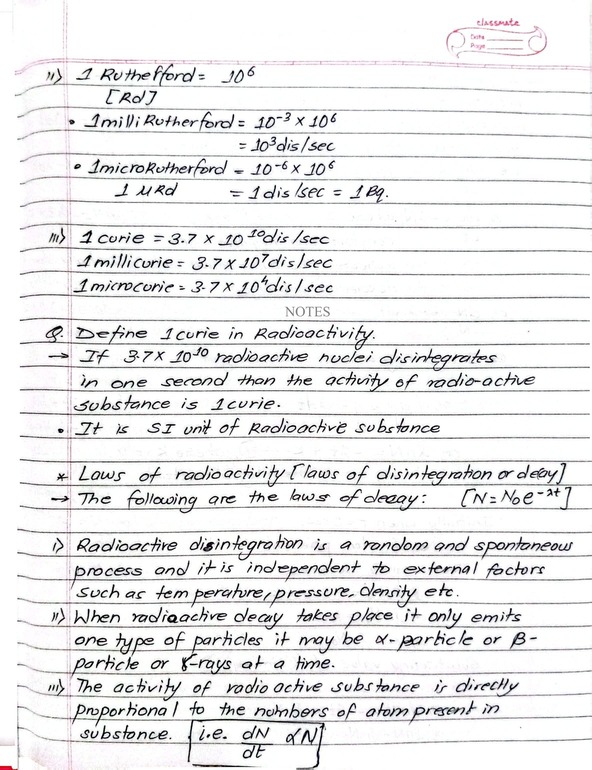 classmate
Date
Page
ii) 1 Rutherford = 10⁶
[Rd]
• 1milli Rutherford = 10⁻³ × 10⁶
= 10³ dis/sec
• 1microRutherford = 10⁻⁶ × 10⁶
1 μRd = 1 dis/sec = 1 Bq.
iii) 1 curie = 3.7 × 10¹⁰ dis/sec
1 millicurie = 3.7 × 10⁷ dis/sec
1 microcurie = 3.7 × 10⁴ dis/sec
NOTES
Q. Define 1 curie in Radioactivity.
→ If 3.7 × 10⁻¹⁰ radioactive nuclei disintegrates
in one second than the activity of radio-active
substance is 1 curie.
• It is SI unit of Radioactive substance
* Laws of radioactivity [laws of disintegration or decay]
→ The following are the laws of decay: [N = N₀e^-λt]
i) Radioactive disintegration is a random and spontaneous
process and it is independent to external factors
such as temperature, pressure, density etc.
ii) When radioactive decay takes place it only emits
one type of particles it may be α-particle or β-
particle or γ-rays at a time.
iii) The activity of radio active substance is directly
proportional to the numbers of atom present in
substance. i.e. dN/dt ∝ N